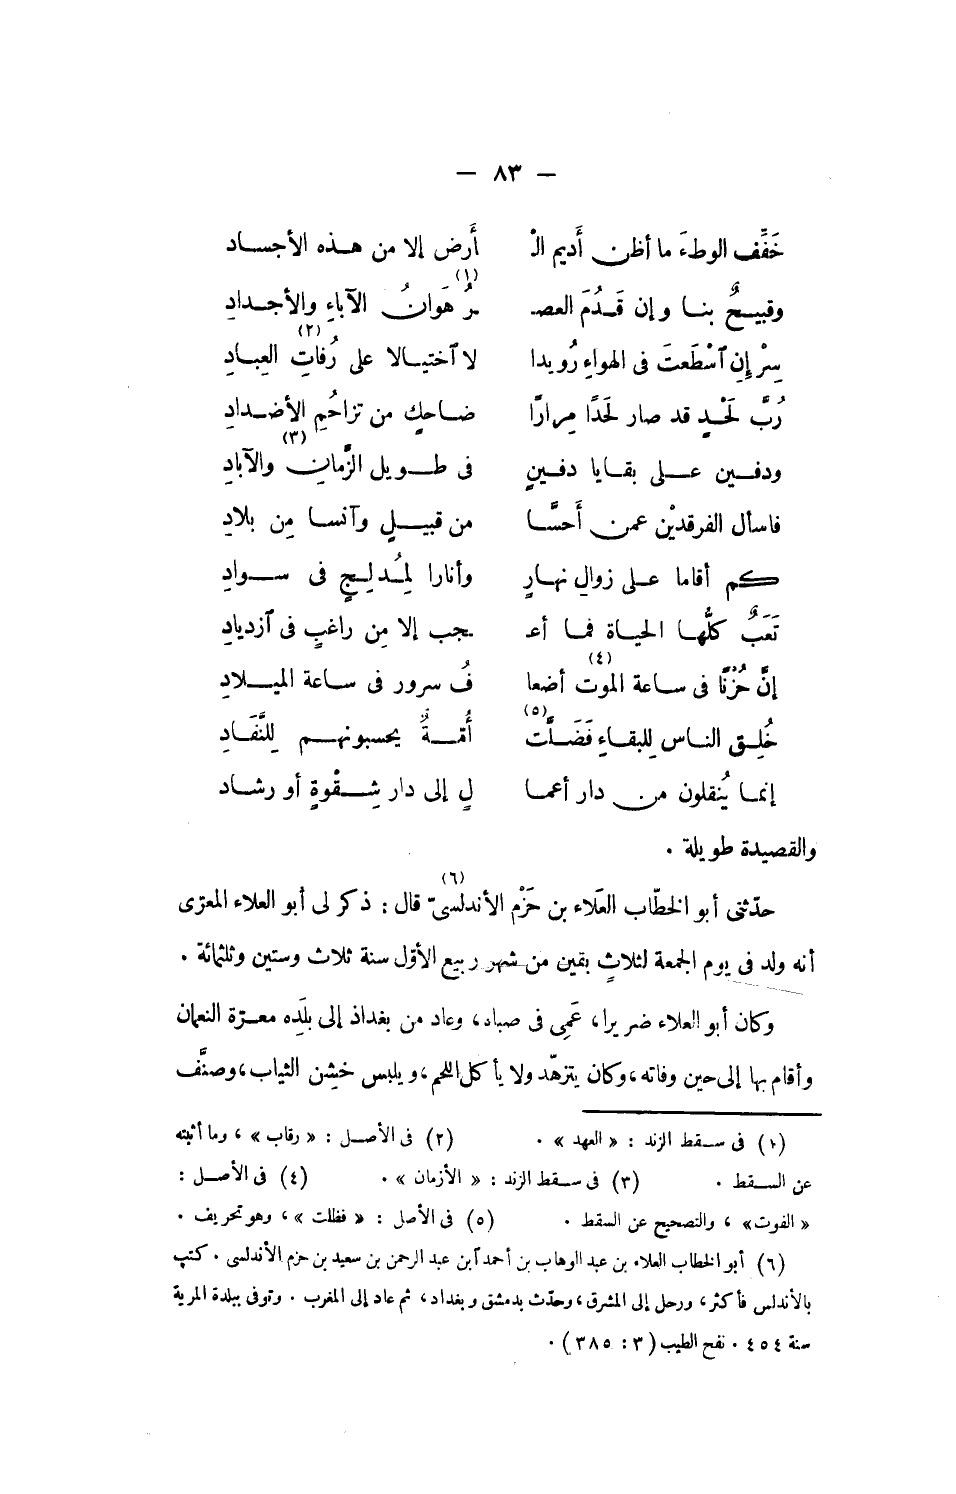 — ٨٣ —
خَفِّف الوطءَ ما أظن أَديم الْـ أَرض إلا من هذه الأجساد
وقبيحٌ بنا وإن قَدُمَ العصـ ـرُ (١) هَوانُ الآباءِ والأجدادِ
سِرْ إِنِ ٱسْطَعتَ فى الهواءِ رُويدا لا ٱختيالا على رُفاتِ (٢) العِبادِ
رُبَّ لَحْدٍ قد صار لَحْدًا مِرارًا ضاحكٍ من تزاحُمِ الأضدادِ
ودفين على بقايا دفينٍ فى طويل الزَّمانِ (٣) والآبادِ
فاسأل الفرقديْن عمن أَحسَّا من قبيلٍ وآنسا مِن بلادِ
كم أقاما على زوالِ نهارٍ وأنارا لِمُدلِجٍ فى سوادِ
تَعَبٌ كلُّها الحياة فما أعـ ـجب إلا مِن راغبٍ فى ٱزديادِ
إنَّ حُزْنًا فى ساعة الموت (٤) أضعا فُ سرور فى ساعة الميلادِ
خُلِق الناس لِلبقاءِ فَضَلَّت (٥) أُمّةٌ يحسبونهم لِلنَّفَادِ
إنما يُنقلون من دار أعما لٍ إلى دار شِقْوةٍ أو رشاد
والقصيدة طويلة .
حدّثنى أبو الخطّاب العَلاء بن حَزْم الأندلسىّ (٦) قال : ذكر لى أبو العلاء المعرّى
أنه ولد فى يوم الجمعة لثلاثٍ بقين من شهر ربيع الأوّل سنة ثلاث وستين وثلثمائة .
وكان أبو العلاء ضريرا، عَمِى فى صباه، وعاد من بغداذ إلى بلَده معرّة النعمان
وأقام بها إلى حين وفاته، وكان يتزهّد ولا يأكل اللحم، ويلبس خشِن الثياب، وصنَّف
(١) فى سقط الزند : « العهد » . (٢) فى الأصل : « رقاب » ، وما أثبته
عن السقط . (٣) فى سقط الزند : « الأزمان » . (٤) فى الأصل :
« الفوت » ، والتصحيح عن السقط . (٥) فى الأصل : « فظلت » ، وهو تحريف .
(٦) أبو الخطاب العلاء بن عبد الوهاب بن أحمد ٱبن عبد الرحمن بن سعيد بن حزم الأندلسى . كتب
بالأندلس فأكثر، ورحل إلى المشرق، وحدّث بدمشق وبغداد، ثم عاد إلى المغرب . وتوفى ببلدة المرية
سنة ٤٥٤ . نفح الطيب (٣ : ٣٨٥) .